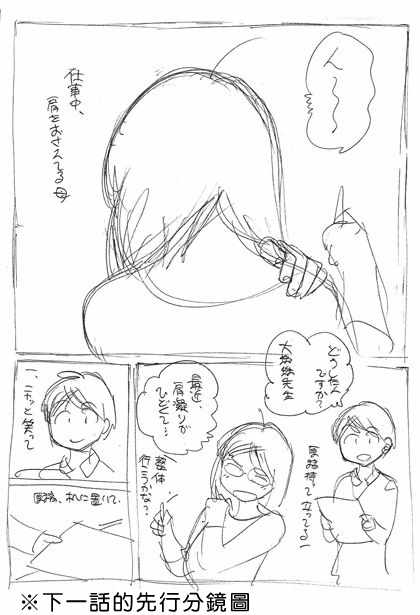 ん〜〜
仕事中、
肩をおさえてる母
どうしたん
ですか?
先生
最近、
肩凝りが
ひどくて…
整体
行こうかな?
原稿持って立ってる
ニヤッと笑って
原稿、机に置いて、
※下一話的先行分鏡圖